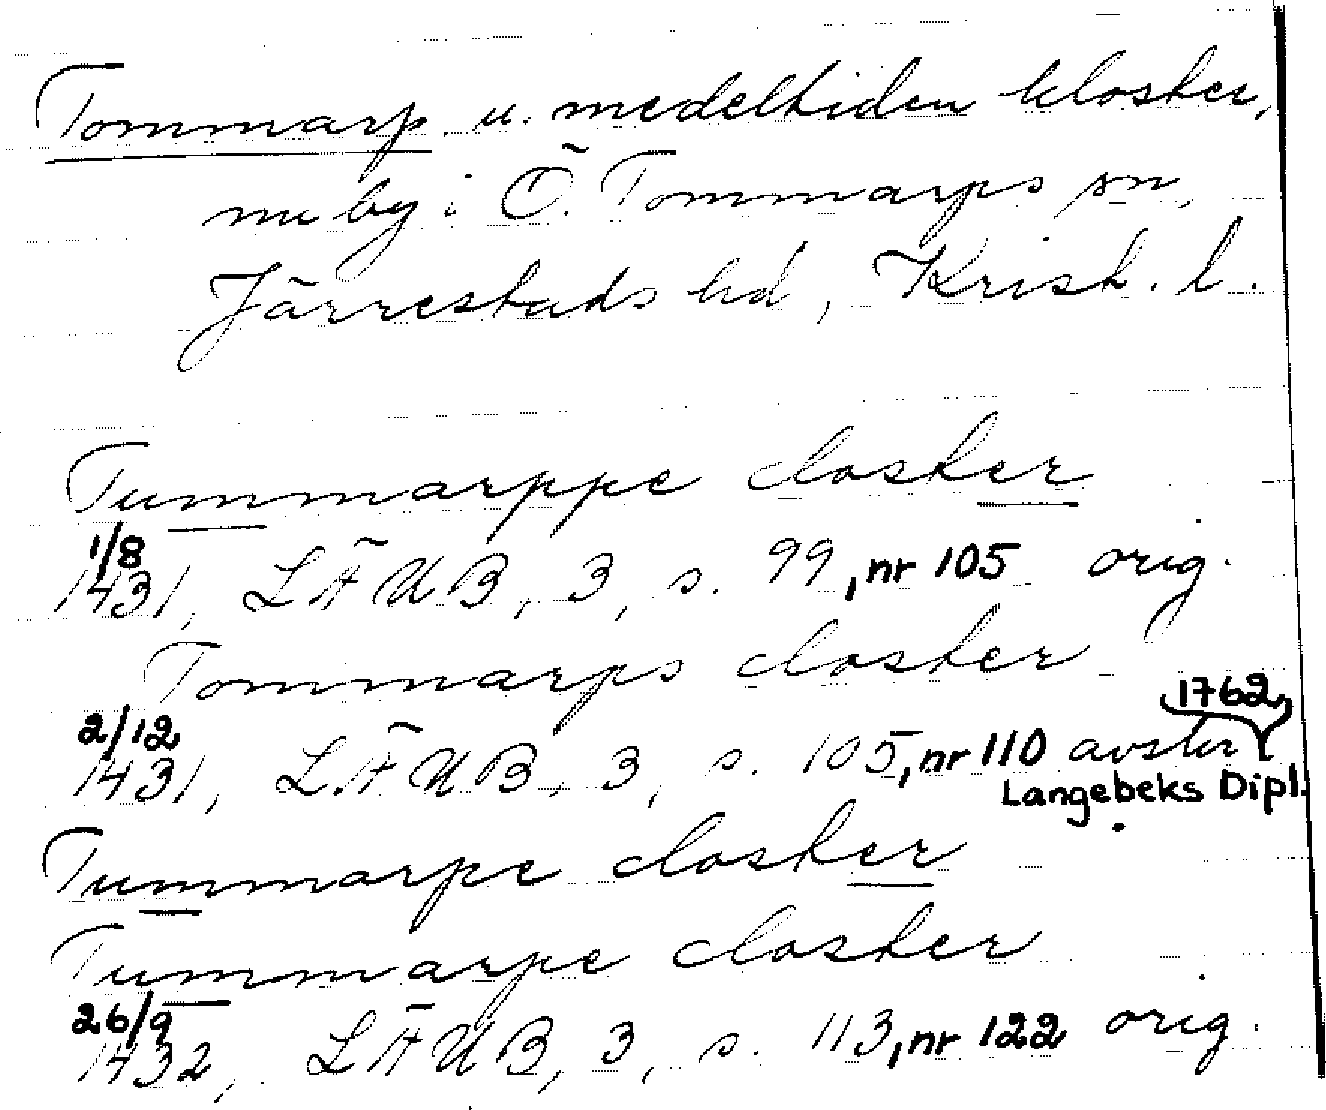 Tommarp u. medeltiden kloster,
nu by i Ö. Tommarps sn,
Järrestads hd, Krist. l.
Tummarppe closter
1/8
1431, LÄUB, 3, s. 99, nr 105 orig.
Tommarps closter
2/12 1762
1431, LÄUB, 3, s. 105, nr 110 avskr
Langebeks Dipl.
Tummarpe closter
Tummarpe closter
26/9
1432, LÄUB, 3, s. 113, nr 122 orig.